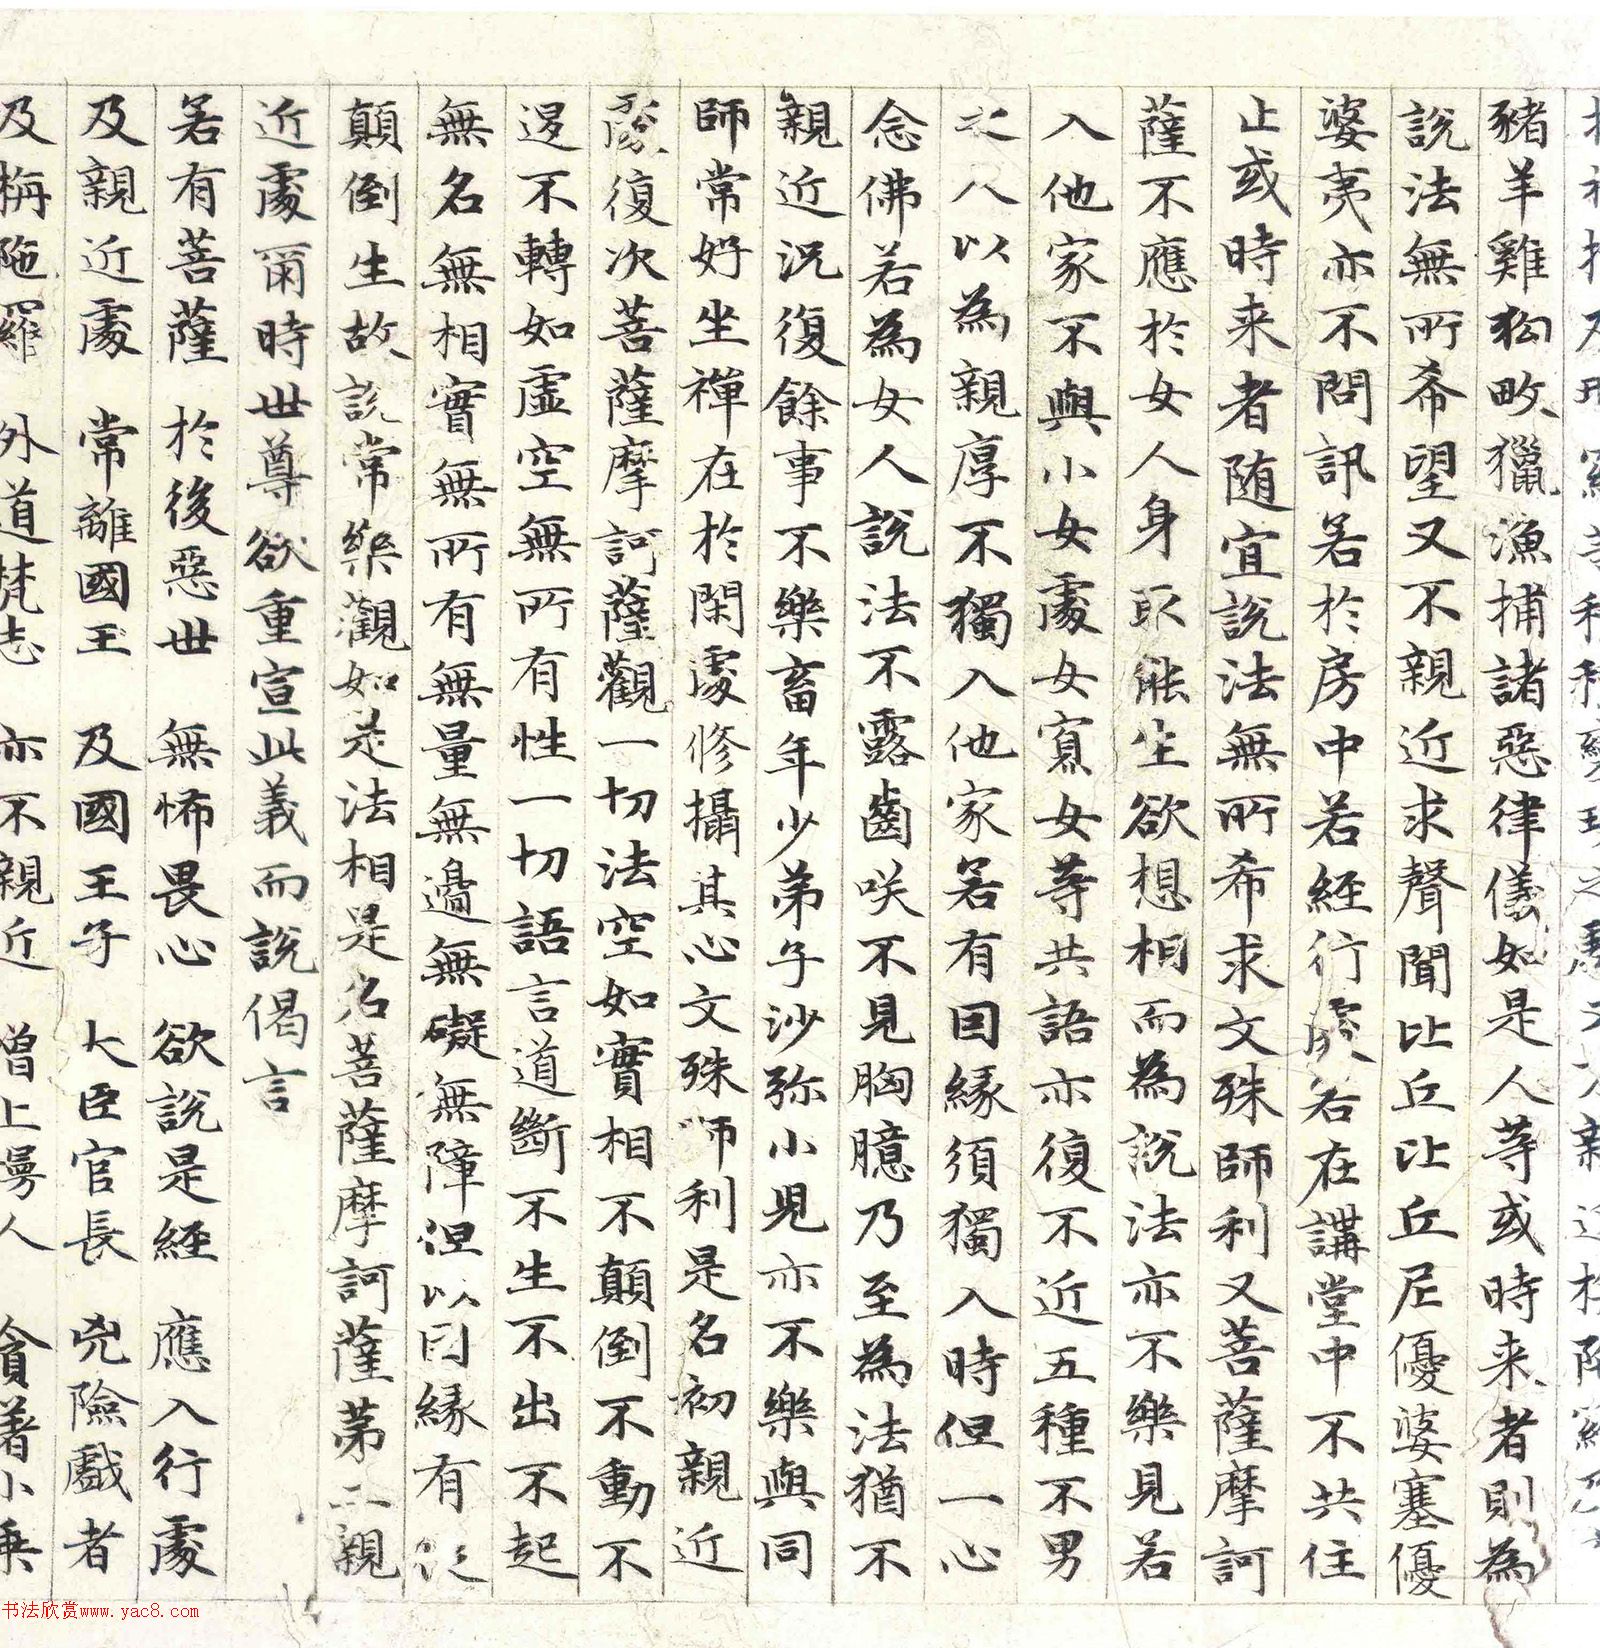 豬羊雞狗畋獵漁捕諸惡律儀如是人等或時来者則為
說法無所希望又不親近求聲聞比丘比丘尼優婆塞優
婆夷亦不問訊若於房中若經行處若在講堂中不共住
止或時来者随宜說法無所希求文殊師利又菩薩摩訶
薩不應於女人身取能生欲想相而為說法亦不樂見若
入他家不與小女處女寡女等共語亦復不近五種不男
之人以為親厚不獨入他家若有因緣須獨入時但一心
念佛若為女人說法不露齒咲不見胸臆乃至為法猶不
親近況復餘事不樂畜年少弟子沙弥小兒亦不樂與同
師常好坐禪在於閑處修攝其心文殊師利是名初親近
處復次菩薩摩訶薩觀一切法空如實相不顛倒不動不
退不轉如虛空無所有性一切語言道斷不生不出不起
無名無相實無所有無量無邊無礙無障但以因緣有從
顛倒生故說常樂觀如是法相是名菩薩摩訶薩第二親
近處爾時世尊欲重宣此義而說偈言
若有菩薩 於後惡世 無怖畏心 欲說是經 應入行處
及親近處 常離國王 及國王子 大臣官長 兇險戲者
及栴陁羅 外道梵志 亦不親近 增上慢人 貪著小乗
书法欣赏www.yac8.com